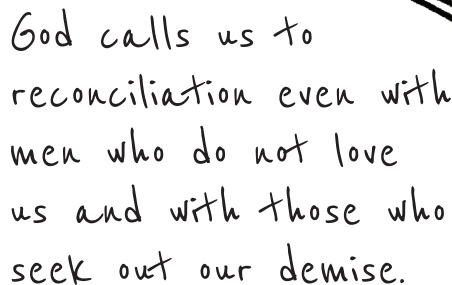 God calls us to
reconciliation even with
men who do not love
us and with those who
seek out our demise.